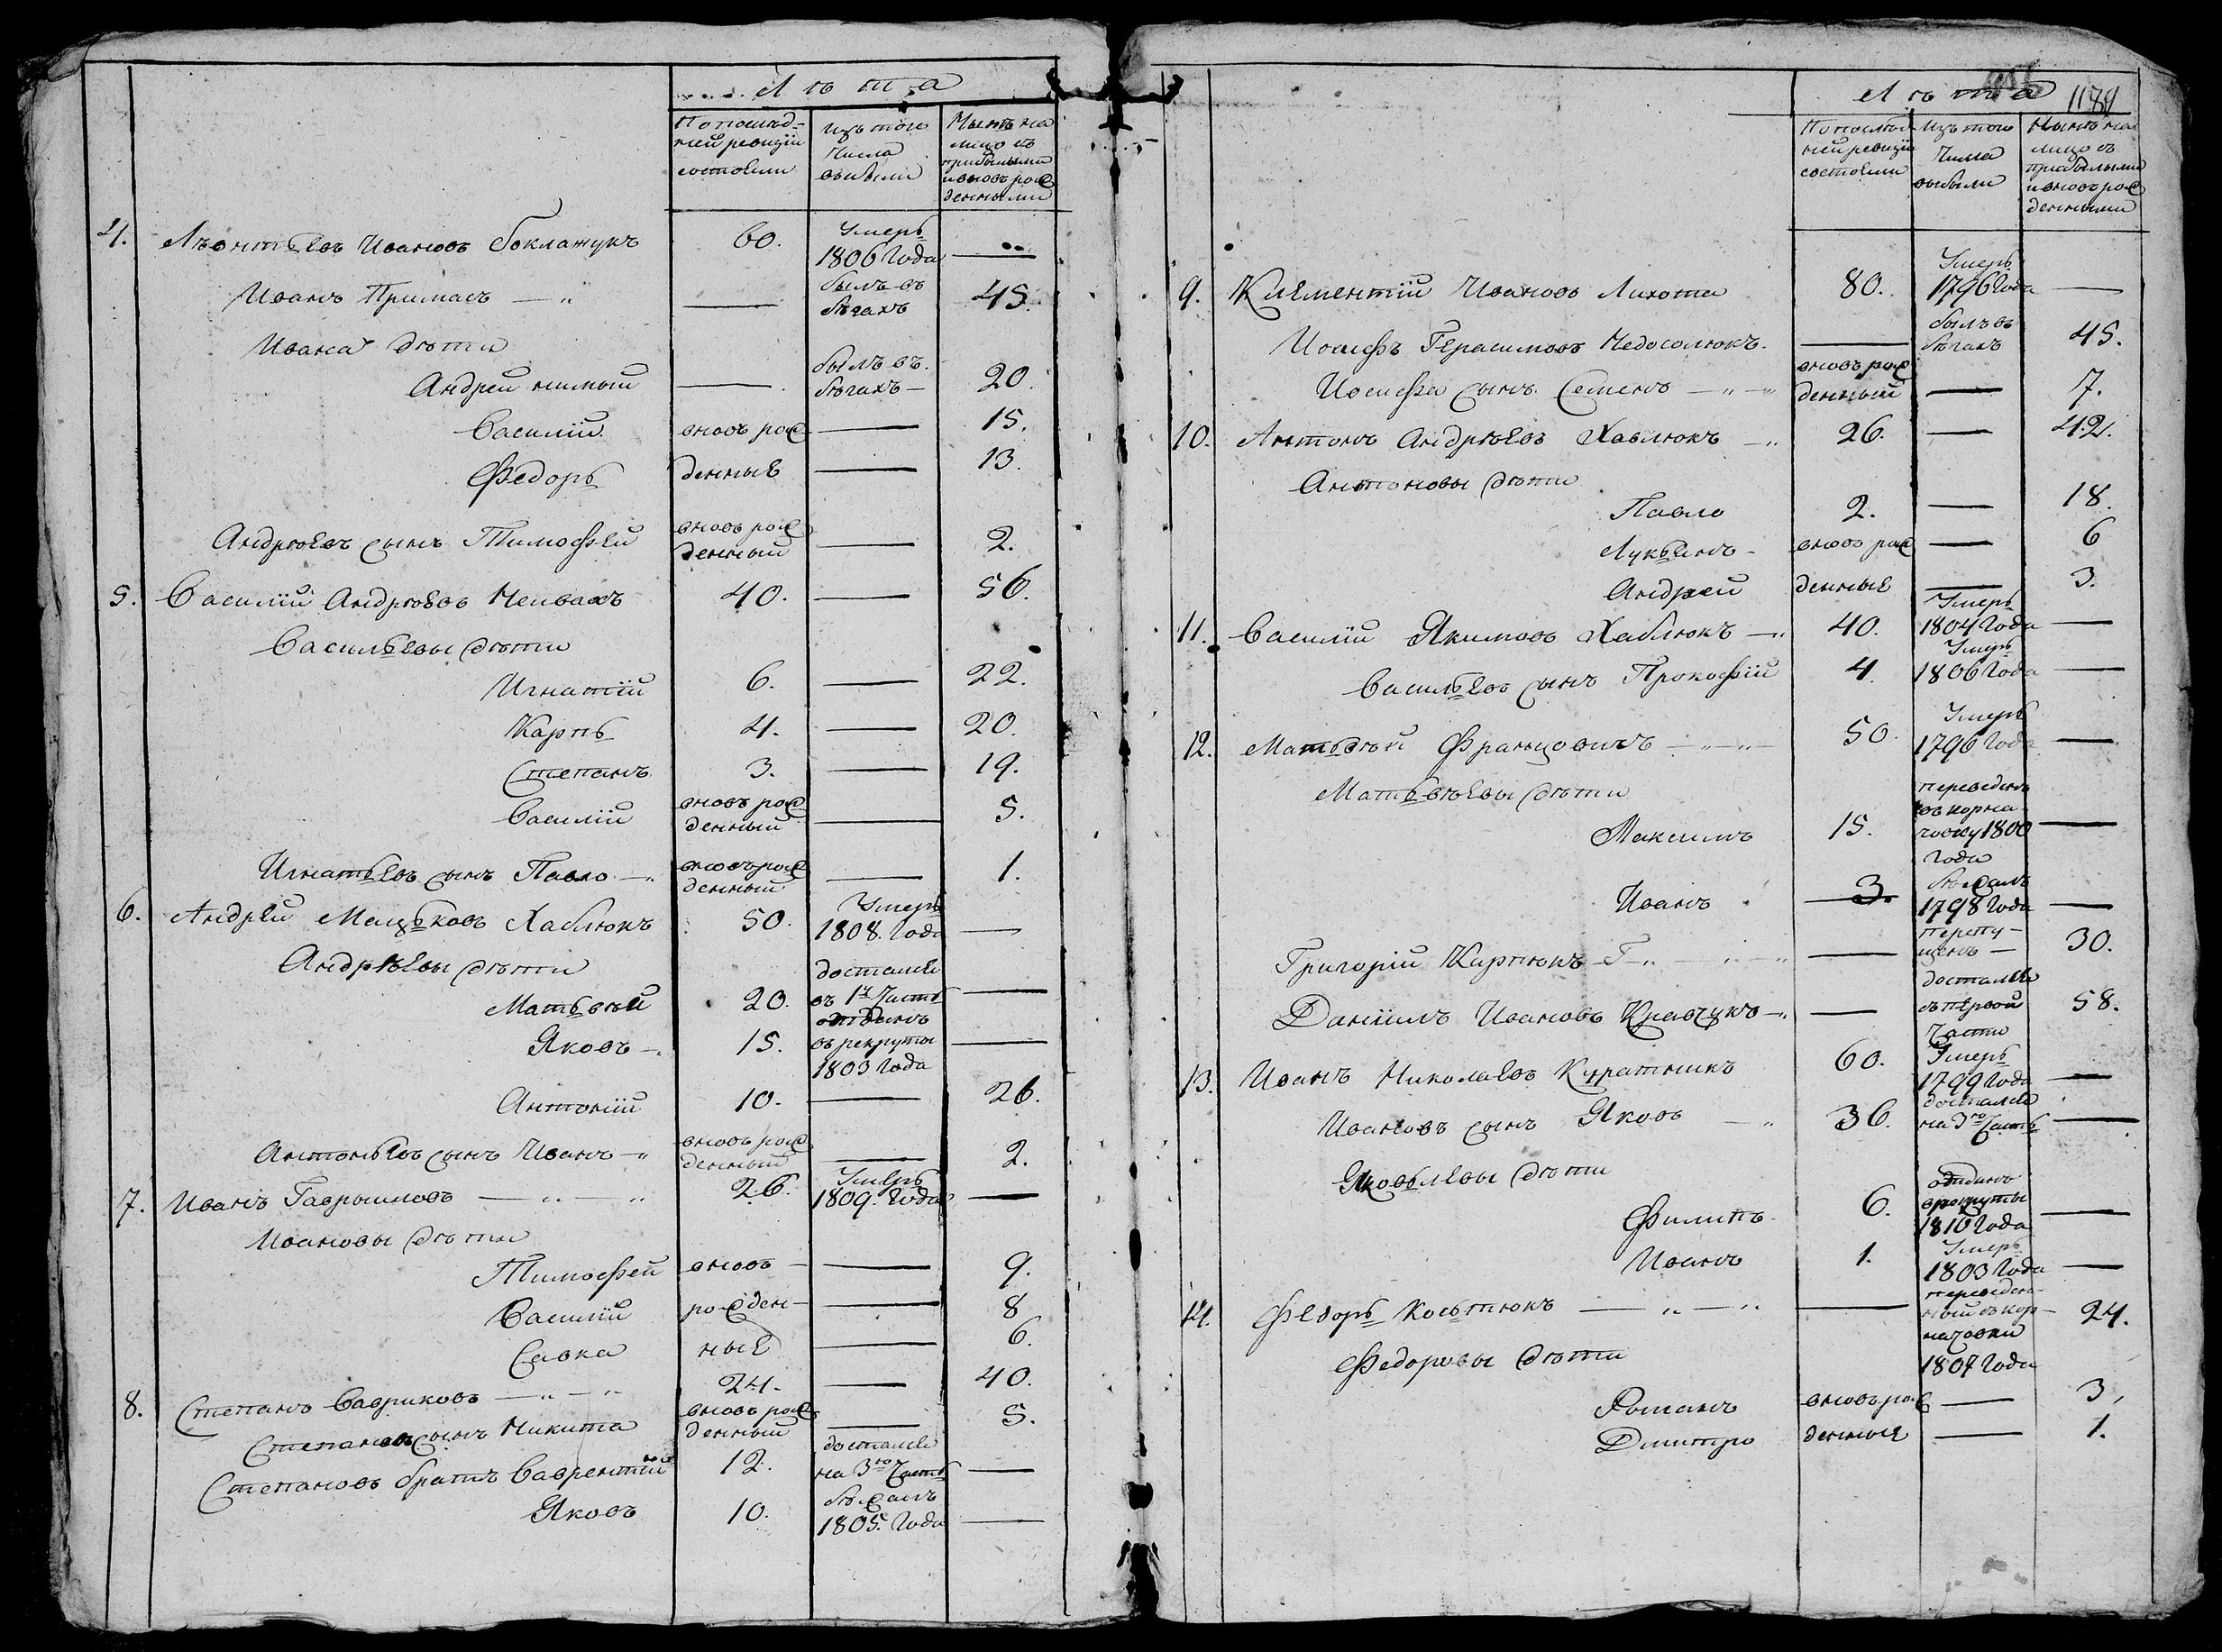 Лѣта
По послѣд-
ней ревизіи
состояли
Изъ того
числа
выбыли
Нынѣ на
лицо съ
прибылыми
и вновь рож
денными
4. Лѣонтьевъ Ивановъ Боклажукъ 60. Умеръ 1806 Года —
Иванъ Примасъ — былъ въ бѣгахъ 45.
Ивана дѣти
Андрей нимый — былъ въ бѣгахъ — 20.
Василій вновь рож — 15.
Федоръ денные — 13.
Андрѣевъ сынъ Тимофей вновь рож денный — 2.
5. Василій Андрѣевъ Чепвахъ 40. — 56.
Васильевы дѣти
Игнатій 6. — 22.
Карпъ 4. — 20.
Степанъ 3. — 19.
Василій вновь рож денный — 5.
Игнатьевъ сынъ Павло вновь рож денный — 1.
6. Андрей Мацьковъ Хаблюкъ 50. Умеръ 1808. Года —
Андрѣевы дѣти
Матьвѣй 20. достался въ 1й Часть —
Яковъ 15. отданъ въ рекруты 1803 Года —
Антоній 10. — 26.
Антоньевъ сынъ Иванъ вновь рож денный — 2.
7. Иванъ Гаврымовъ 26. Умеръ 1809. Года —
Ивановы дѣти
Тимофей вновь — 9.
Василій рожден- — 8
Савка ные — 6.
8. Степанъ Вавриковъ 24. — 40.
Степановъ сынъ Никита вновь рож денный — 5.
Степановъ братъ Лаврентій 12. достался на 3ю Часть —
Яковъ 10. бѣжалъ 1805. Года —
1189
Лѣта
По послѣд
ней ревизіи
состояли
Изъ того
числа
выбыли
Нынѣ на
лицо съ
прибылыми
и вновь рож
денными
9. Климентій Ивановъ Лихота 80. Умеръ 1796 Года —
Иосифъ Герасимовъ Недосолюкъ. — былъ въ бѣгахъ 45.
Иосифа сынъ Семенъ вновь рож денный — 7.
10. Антонъ Андрѣевъ Хавлюкъ 26. — 42.
Антоновы дѣти
Павло 2. — 18.
Лукьянъ вновь рож — 6
Андрей денные — 3.
11. Василій Якимовъ Хаблюкъ 40. Умеръ 1804 Года —
Васильевъ сынъ Прокофій 4. Умеръ 1806 Года —
12. Матьвѣй Францовичъ 50. Умеръ 1796 Года —
Матьвѣевы дѣти
Максимъ 15. переведенъ въ Корна човку 1800 Года —
Иванъ 3. бѣжалъ 1798 Года —
Григорій Карпюкъ — перепу- щенъ — 30.
Даніилъ Ивановъ Кравчукъ — достался съ первой Части 58.
13. Иванъ Николаевъ Куратникъ 60. Умеръ 1799 Года —
Ивановъ сынъ Яковъ 36. достался на 3ю Часть —
Яковьлевы дѣти
Филипъ 6. отданъ врекруты 1810 Года —
Иванъ 1. Умеръ 1803 Года —
14. Федоръ Костюкъ — переведен- ный съ Кор- начовки 1807 Года 24.
Федоровы дѣти
Романъ вновь рож — 3,
Дмитро денные — 1.